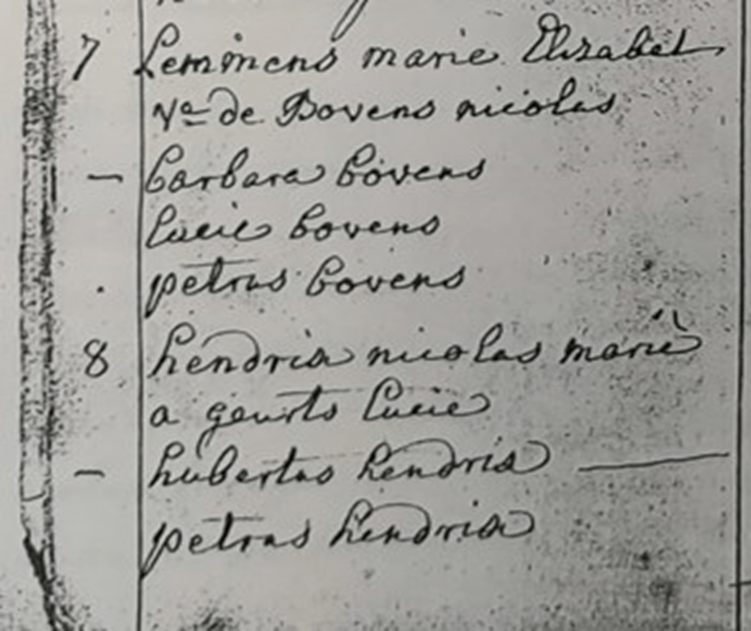 7 Lemmens marie Elisabet
Ve de Bovens nicolas
— barbara bovens
lucie bovens
petrus bovens
8 hendrix nicolas marié
a geurts lucie
— hubertus hendrix —
petrus hendrix